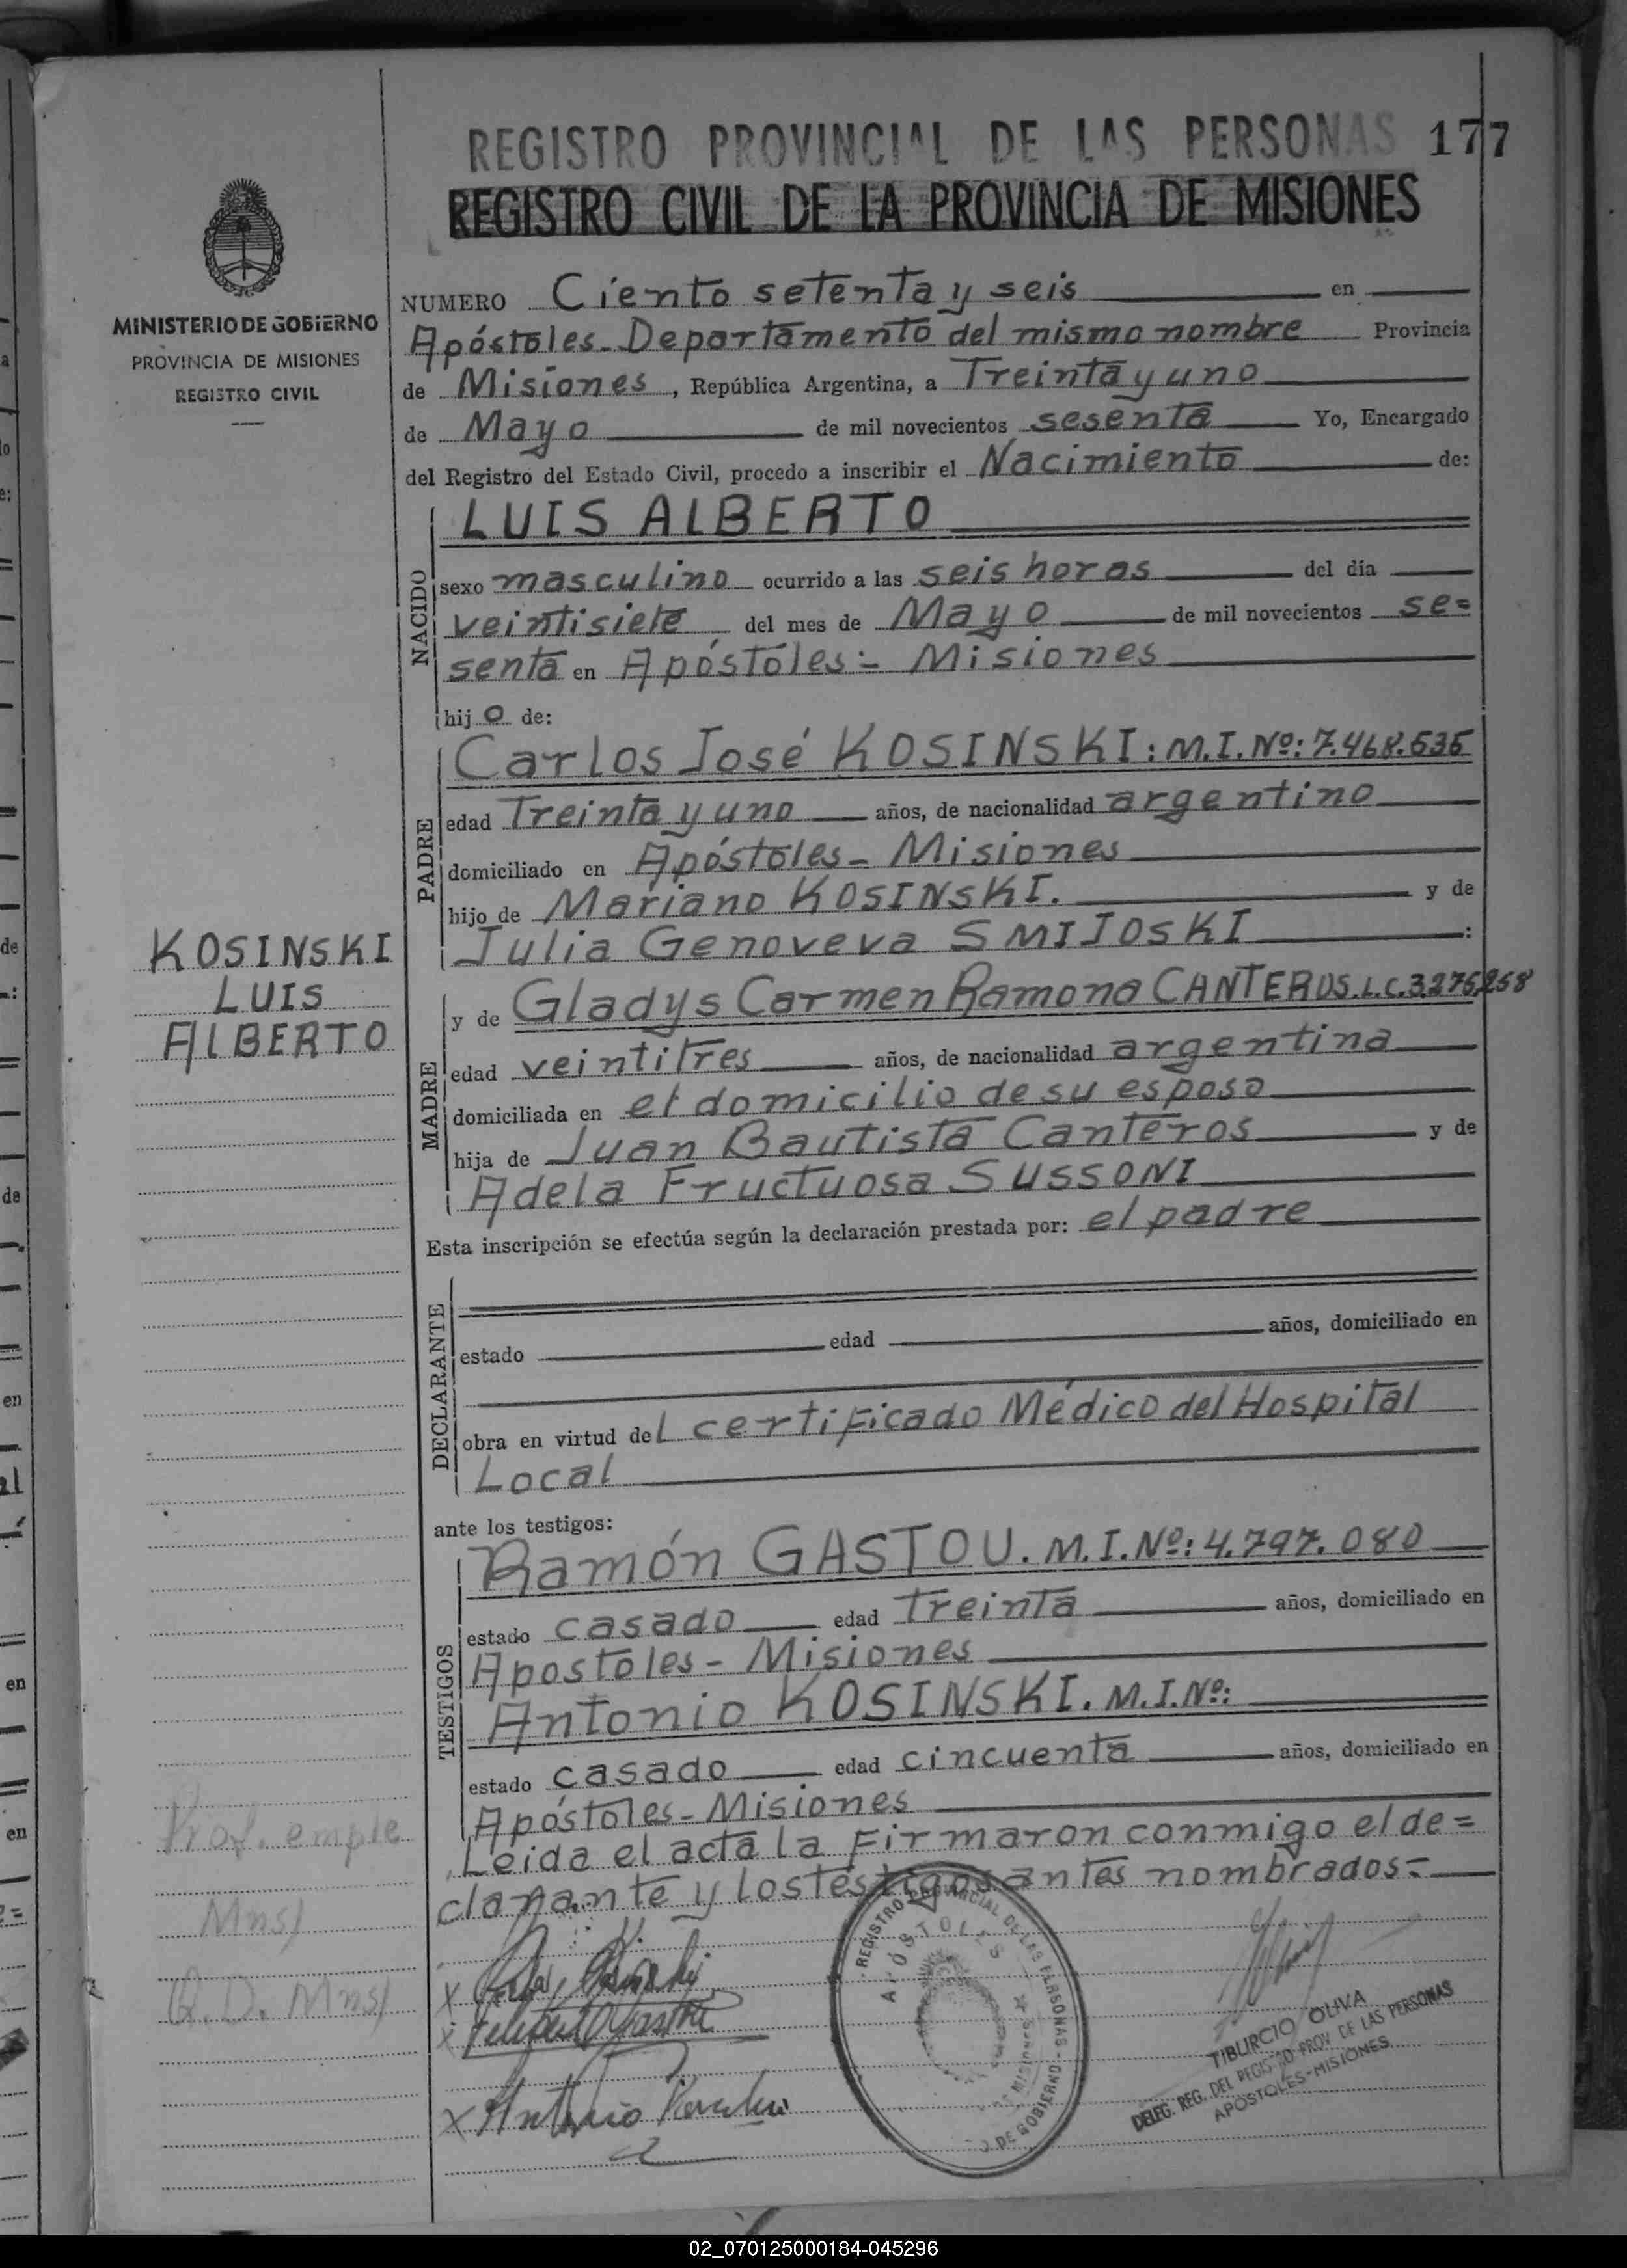 REGISTRO PROVINCIAL DE LAS PERSONAS 177
REGISTRO CIVIL DE LA PROVINCIA DE MISIONES
MINISTERIO DE GOBIERNO
PROVINCIA DE MISIONES
REGISTRO CIVIL
NUMERO Ciento setenta y seis en
Apóstoles-Departamento del mismo nombre Provincia
de Misiones, República Argentina, a Treinta y uno
de Mayo de mil novecientos sesenta Yo, Encargado
del Registro del Estado Civil, procedo a inscribir el Nacimiento de:
NACIDO
LUIS ALBERTO
sexo masculino ocurrido a las seis horas del día
veintisiete del mes de Mayo de mil novecientos se=
senta en Apóstoles:- Misiones
hijo de:
PADRE
Carlos José KOSINSKI: M.I.Nº: 7.468.535
edad Treinta y uno años, de nacionalidad argentino
domiciliado en Apóstoles- Misiones
hijo de Mariano KOSINSKI. y de
Julia Genoveva SMIJOSKI :
KOSINSKI
LUIS
ALBERTO
MADRE
y de Gladys Carmen Ramona CANTEROS. L.C. 3.276,258
edad veintitres años, de nacionalidad argentina
domiciliada en el domicilio de su esposo
hija de Juan Bautista Canteros y de
Adela Fructuosa SUSSONI
Esta inscripción se efectúa según la declaración prestada por: el padre
DECLARANTE
estado edad años, domiciliado en
obra en virtud del certificado Médico del Hospital
Local
ante los testigos:
TESTIGOS
Ramón GASTOU. M.I.Nº: 4.797.080
estado casado edad Treinta años, domiciliado en
Apostoles- Misiones
Antonio KOSINSKI. M.I.Nº:
estado casado edad cincuenta años, domiciliado en
Apóstoles-Misiones
Leida el acta la firmaron conmigo el de=
clarante y los testigos antes nombrados=
Prof. emple
Mns/
Q.D. Mns/
REGISTRO PROVINCIAL DE LAS PERSONAS
APÓSTOLES
MISIONES
DE GOBIERNO
Antonio
TIBURCIO OLIVA
DELEG. REG. DEL REGISTRO PROV. DE LAS PERSONAS
APOSTOLES-MISIONES
02_070125000184-045296